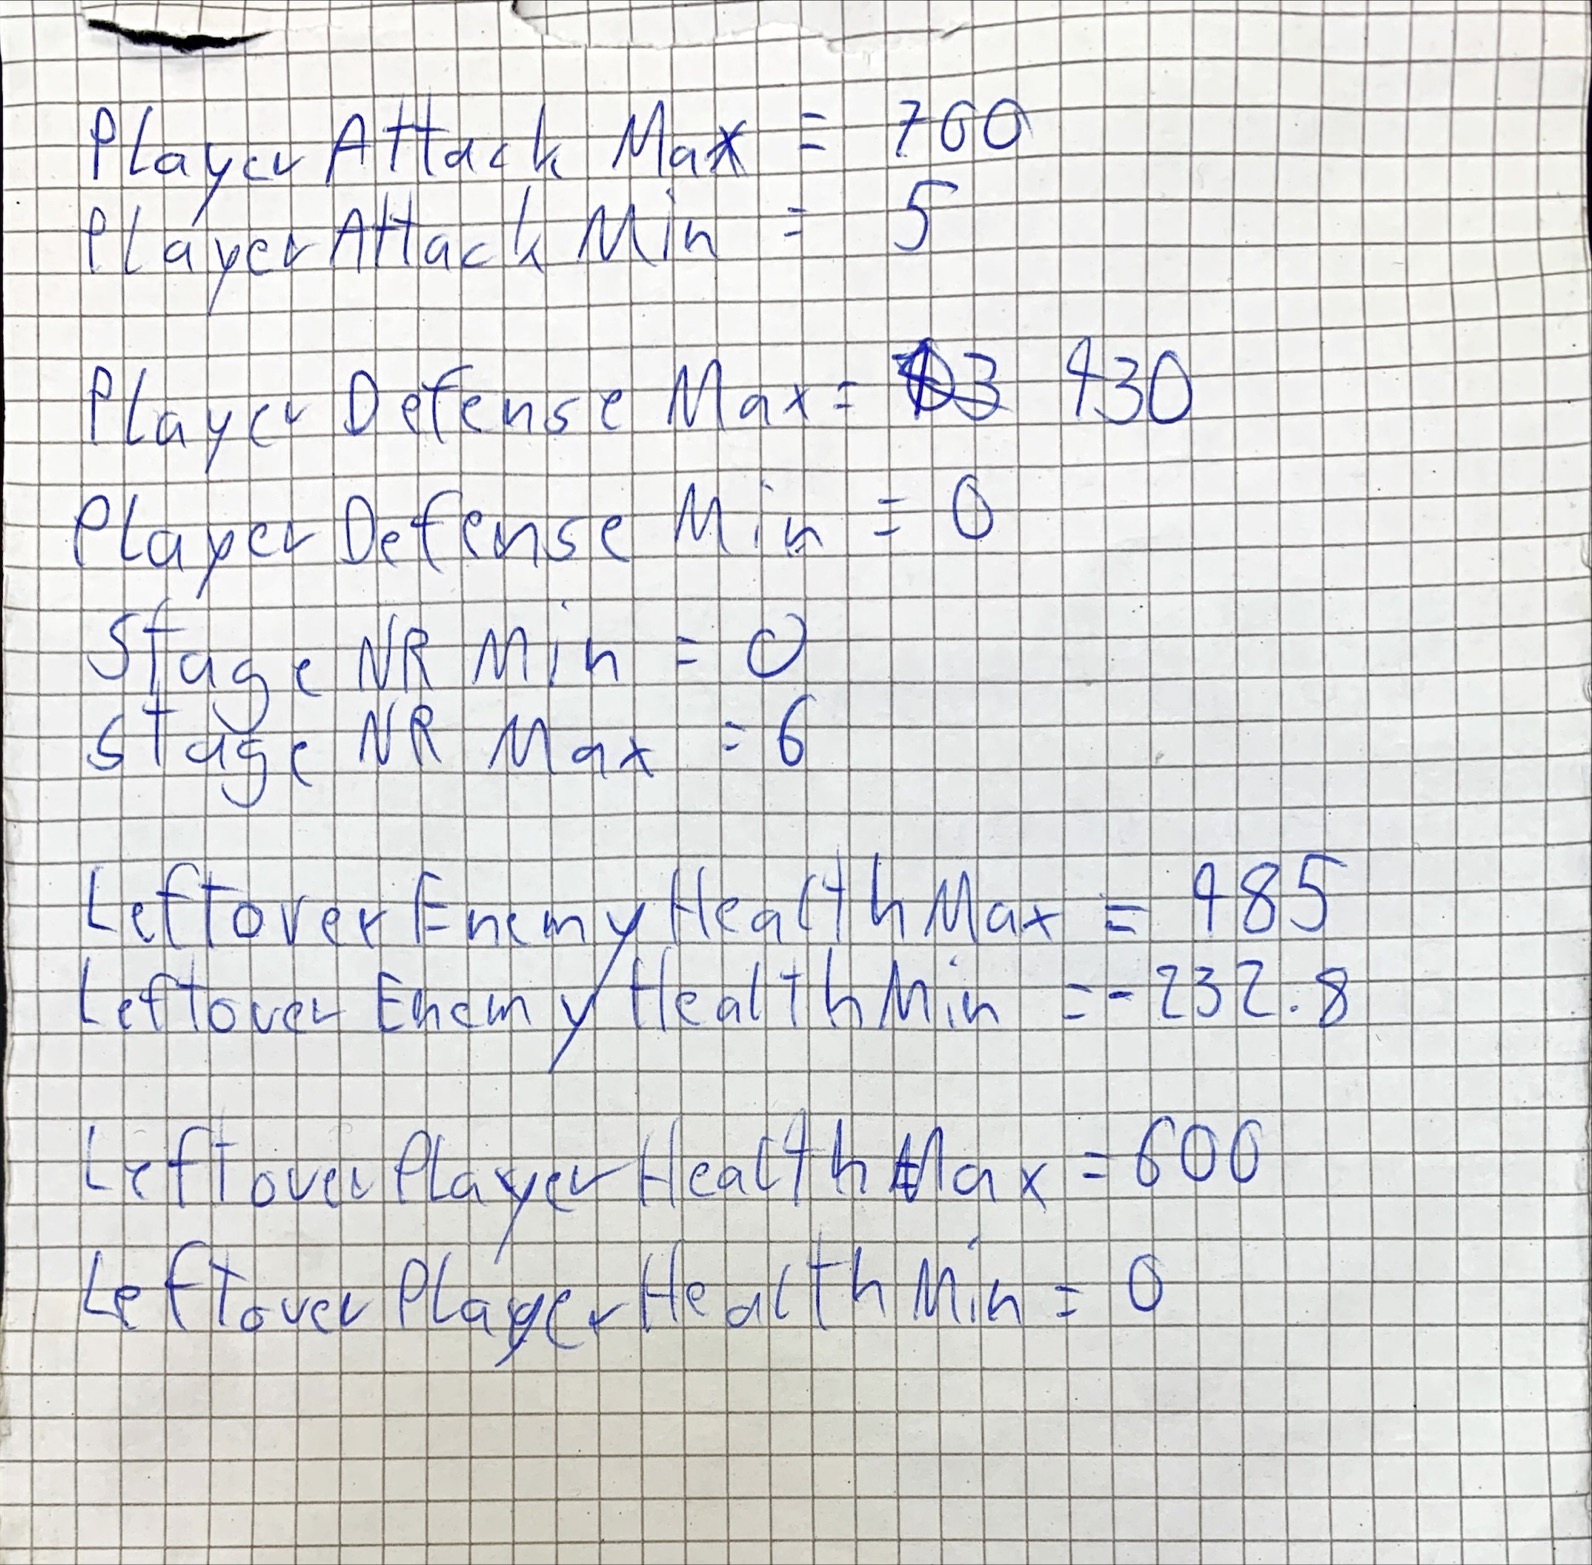 Player Attack Max = 700
Player Attack Min = 5
Player Defense Max = 430
Player Defense Min = 0
Stage NR Min = 0
Stage NR Max = 6
Leftover Enemy Health Max = 485
Leftover Enemy Health Min = -232.8
Leftover Player Health Max = 600
Leftover Player Health Min = 0